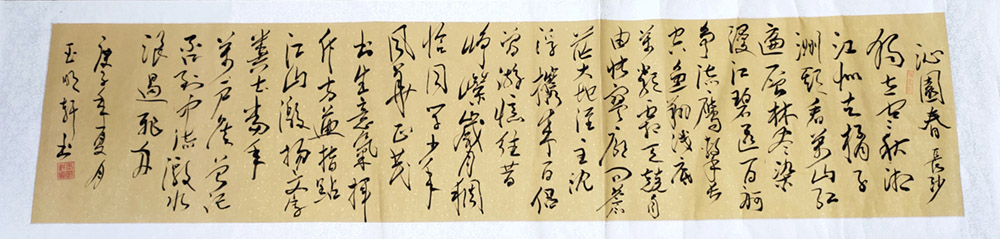 沁園春 長沙
獨立寒秋湘
江北去橘子
洲頭看萬山紅
遍層林尽染
漫江碧透百舸
争流鷹擊長
空魚翔浅底
萬類霜天競自
由悵寥廓問蒼
茫大地谁主沉
浮攜来百侣
曾游憶往昔
崢嶸歲月稠
恰同学少年
風華正茂
书生意氣揮
斥方遒指點
江山激揚文字
糞土當年
萬户侯曾记
否到中流激水
浪遏飛舟
庚子年夏月
玉明軒书